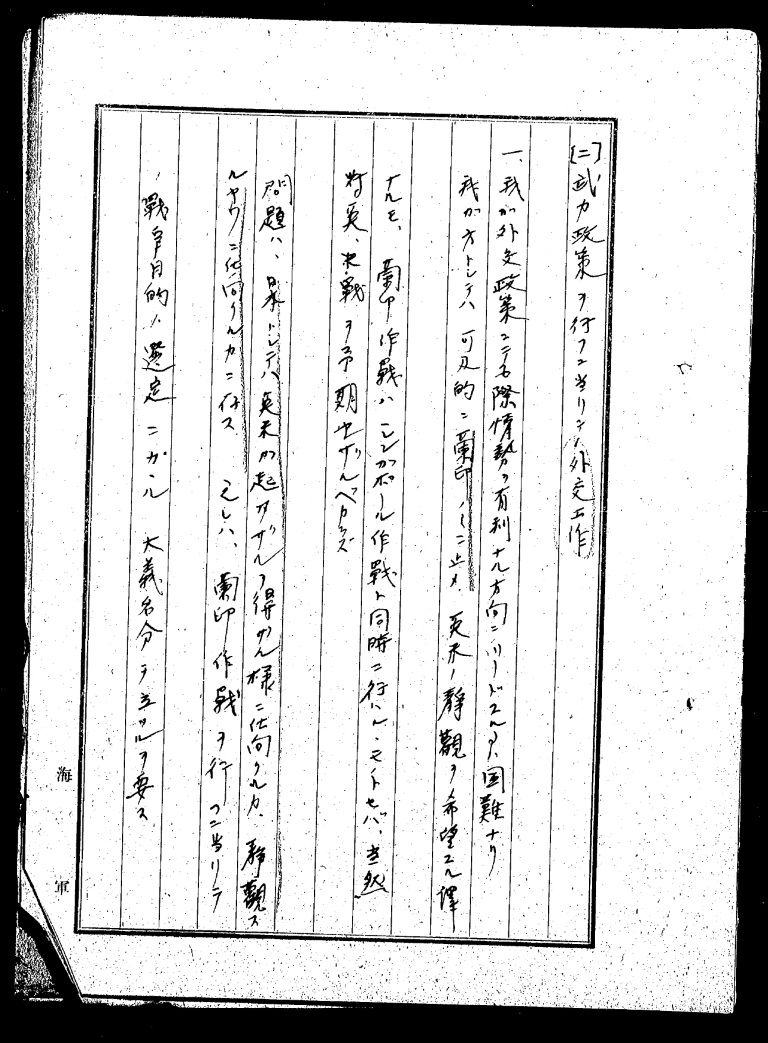 [二]武力政策ヲ行フニ当リテノ外交工作
一、我ガ外交政策ニテ国際情勢ヲ有利ナル方向ニリードスル事ハ困難ナリ
我ガ方トシテハ可及的ニ蘭印ノミニ止メ、英米ノ靜觀ヲ希望スル譯
ナルモ、蘭印作戰ハシンガポール作戰ト同時ニ行ハルヽモノトセバ、当然
対英、決戰ヲ予期セザルベカラズ
問題ハ、日本トシテハ英米ガ起タザルヲ得ザル様ニ仕向クルカ、靜觀ス
ルヤウニ仕向クルカニ存ス 之レハ、蘭印作戰ヲ行フニ当リテ
ノ戰争目的ノ選定ニカカル 大義名分ヲ立ツルヲ要ス
海軍